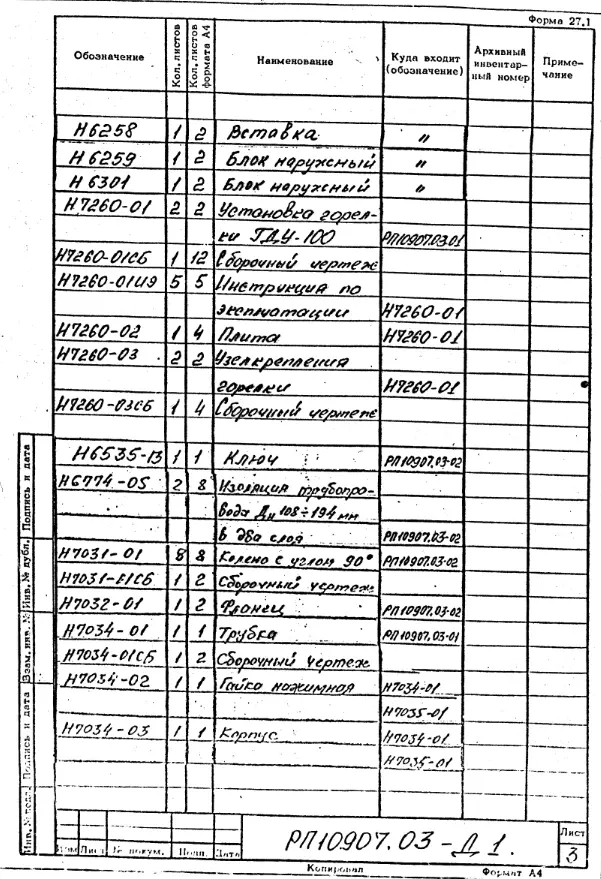 Форма 27.1
Обозначение Кол. листов Кол. листов формата А4 Наименование Куда входит (обозначение) Архивный инвентар- ный номер Приме- чание
Н6258 1 2 Вставка "
Н6259 1 2 Блок наружный "
Н6301 1 2 Блок наружный "
Н7260-01 2 2 Установка горел-
ки ГДУ-100 РП10907.03.01
Н7260-01СБ 1 12 Сборочный чертеж
Н7260-01ИЭ 5 5 Инструкция по
эксплуатации Н7260-01
Н7260-02 1 4 Плита Н7260-01
Н7260-03 2 2 Узел крепления
горелки Н7260-01
Н7260-03СБ 1 4 Сборочный чертеж
Н6535-13 1 1 Ключ РП10907.03-02
Н6774-05 2 8 Изоляция трубопро-
вода Дн 108÷194 мм
в два слоя РП10907.03-02
Н7031-01 8 8 Колено с углом 90° РП10907.03-02
Н7031-01СБ 1 2 Сборочный чертеж
Н7032-01 1 2 Фланец РП10907.03-02
Н7034-01 1 1 Трубка РП10907.03-01
Н7034-01СБ 1 2 Сборочный чертеж
Н7034-02 1 1 Гайка нажимная Н7034-01
Н7035-01
Н7034-03 1 1 Корпус Н7034-01
Н7035-01
Инв. № подл. Подпись и дата Взам. инв. № Инв. № дубл. Подпись и дата
РП10907.03-Д1.
Лист
3
Изм Лист № докум. Подп. Дата
Копировал Формат А4